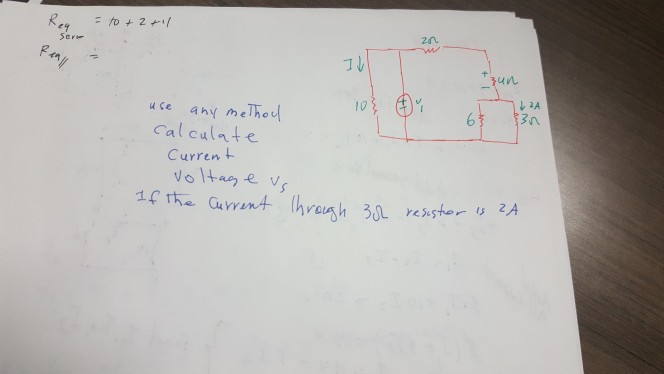 Req = 10 + 2 + 4
Req// =
2Ω
I ↓
+
4Ω
-
10
+
-
6
↓ 2A
3Ω
use any method
Calculate
Current
Voltage Vs
If the Current through 3Ω resistor is 2A